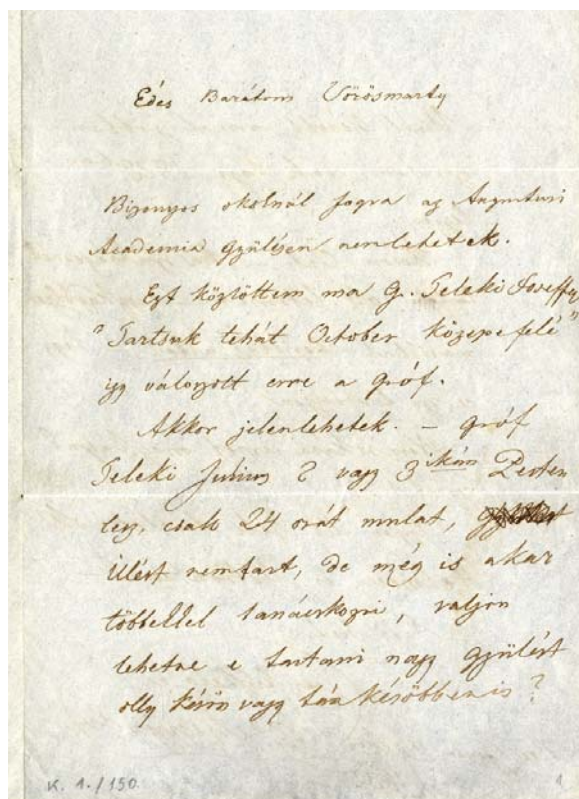 Édes Barátom Vörösmarty
Bizonyos okoknál fogva az Augustusi
Academia gyülésen nemlehetek.
Ezt közlöttem ma G. Teleki Joseffel
"Tartsuk tehát October közepe felé"
igy válaszolt erre a gróf.
Akkor jelenlehetek. — gróf
Teleki Julius 2 vagy 3ikán Pesten
lesz, csak 24 orát mulat,
ülést nemtart, de még is akar
többekkel tanácskozni, valjon
lehetne e tartani nagy gyülést
olly késön vagy tán késöbben is?
K. 1./150.
1